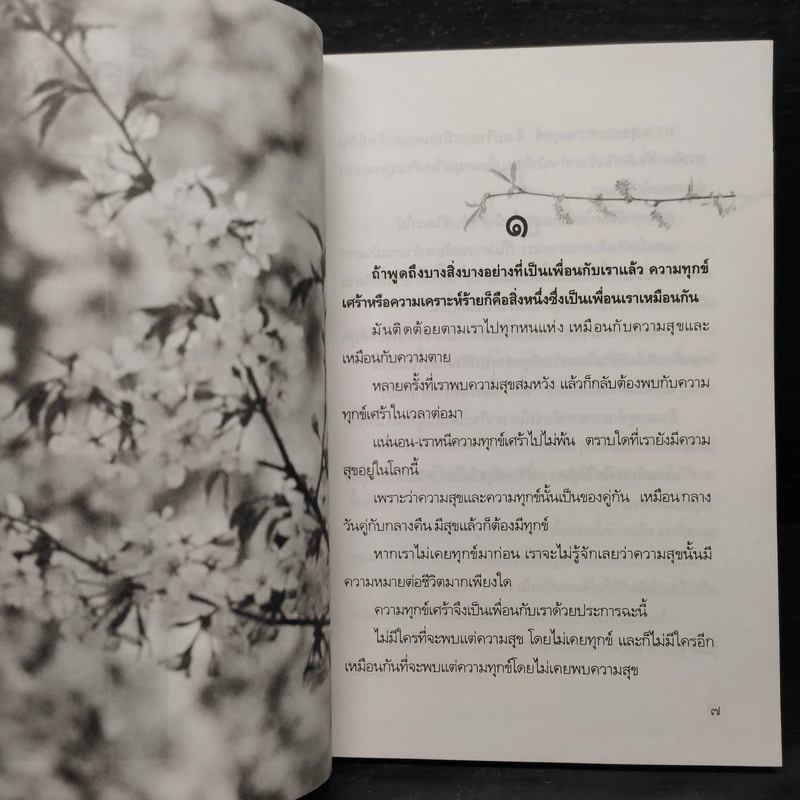 ๑
ถ้าพูดถึงบางสิ่งบางอย่างที่เป็นเพื่อนกับเราแล้ว ความทุกข์
เศร้าหรือความเคราะห์ร้ายก็คือสิ่งหนึ่งซึ่งเป็นเพื่อนเราเหมือนกัน
มันติดต้อยตามเราไปทุกหนแห่ง เหมือนกับความสุขและ
เหมือนกับความตาย
หลายครั้งที่เราพบความสุขสมหวัง แล้วก็กลับต้องพบกับความ
ทุกข์เศร้าในเวลาต่อมา
แน่นอน-เราหนีความทุกข์เศร้าไปไม่พ้น ตราบใดที่เรายังมีความ
สุขอยู่ในโลกนี้
เพราะว่าความสุขและความทุกข์นั้นเป็นของคู่กัน เหมือนกลาง
วันคู่กับกลางคืน มีสุขแล้วก็ต้องมีทุกข์
หากเราไม่เคยทุกข์มาก่อน เราจะไม่รู้จักเลยว่าความสุขนั้นมี
ความหมายต่อชีวิตมากเพียงใด
ความทุกข์เศร้าจึงเป็นเพื่อนกับเราด้วยประการฉะนี้
ไม่มีใครที่จะพบแต่ความสุข โดยไม่เคยทุกข์ และก็ไม่มีใครอีก
เหมือนกันที่จะพบแต่ความทุกข์โดยไม่เคยพบความสุข
๗